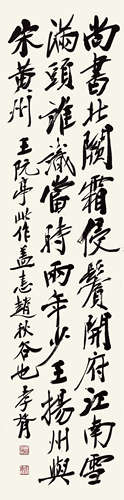 尚書北闕霜侵鬢開府江南雪
滿頭誰識當時兩年少王揚州與
宋黃州 王阮亭此作盖志趙秋谷也 孝胥